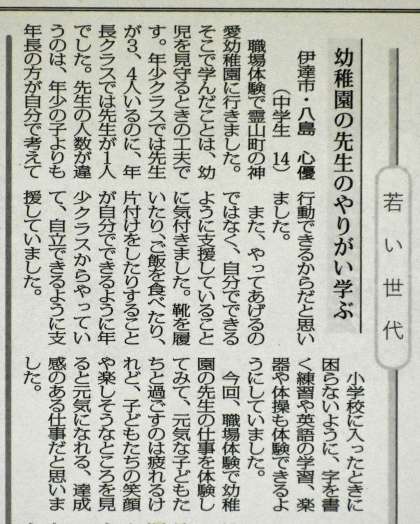 若い世代
幼稚園の先生のやりがい学ぶ
伊達市・八島 心優
(中学生 14)
職場体験で霊山町の神
愛幼稚園に行きました。
そこで学んだことは、幼
児を見守るときの工夫で
す。年少クラスでは先生
が3、4人いるのに、年
長クラスでは先生が1人
でした。先生の人数が違
うのは、年少の子よりも
年長の方が自分で考えて
行動できるからだと思い
ました。
また、やってあげるの
ではなく、自分でできる
ように支援していること
に気付きました。靴を履
いたり、ご飯を食べたり、
片付けをしたりすること
が自分でできるように年
少クラスからやってい
て、自立できるように支
援していました。
小学校に入ったときに
困らないように、字を書
く練習や英語の学習、楽
器や体操も体験できるよ
うにしていました。
今回、職場体験で幼稚
園の先生の仕事を体験し
てみて、元気な子どもた
ちと過ごすのは疲れるけ
れど、子どもたちの笑顔
や楽しそうなところを見
ると元気になれる、達成
感のある仕事だと思いま
した。